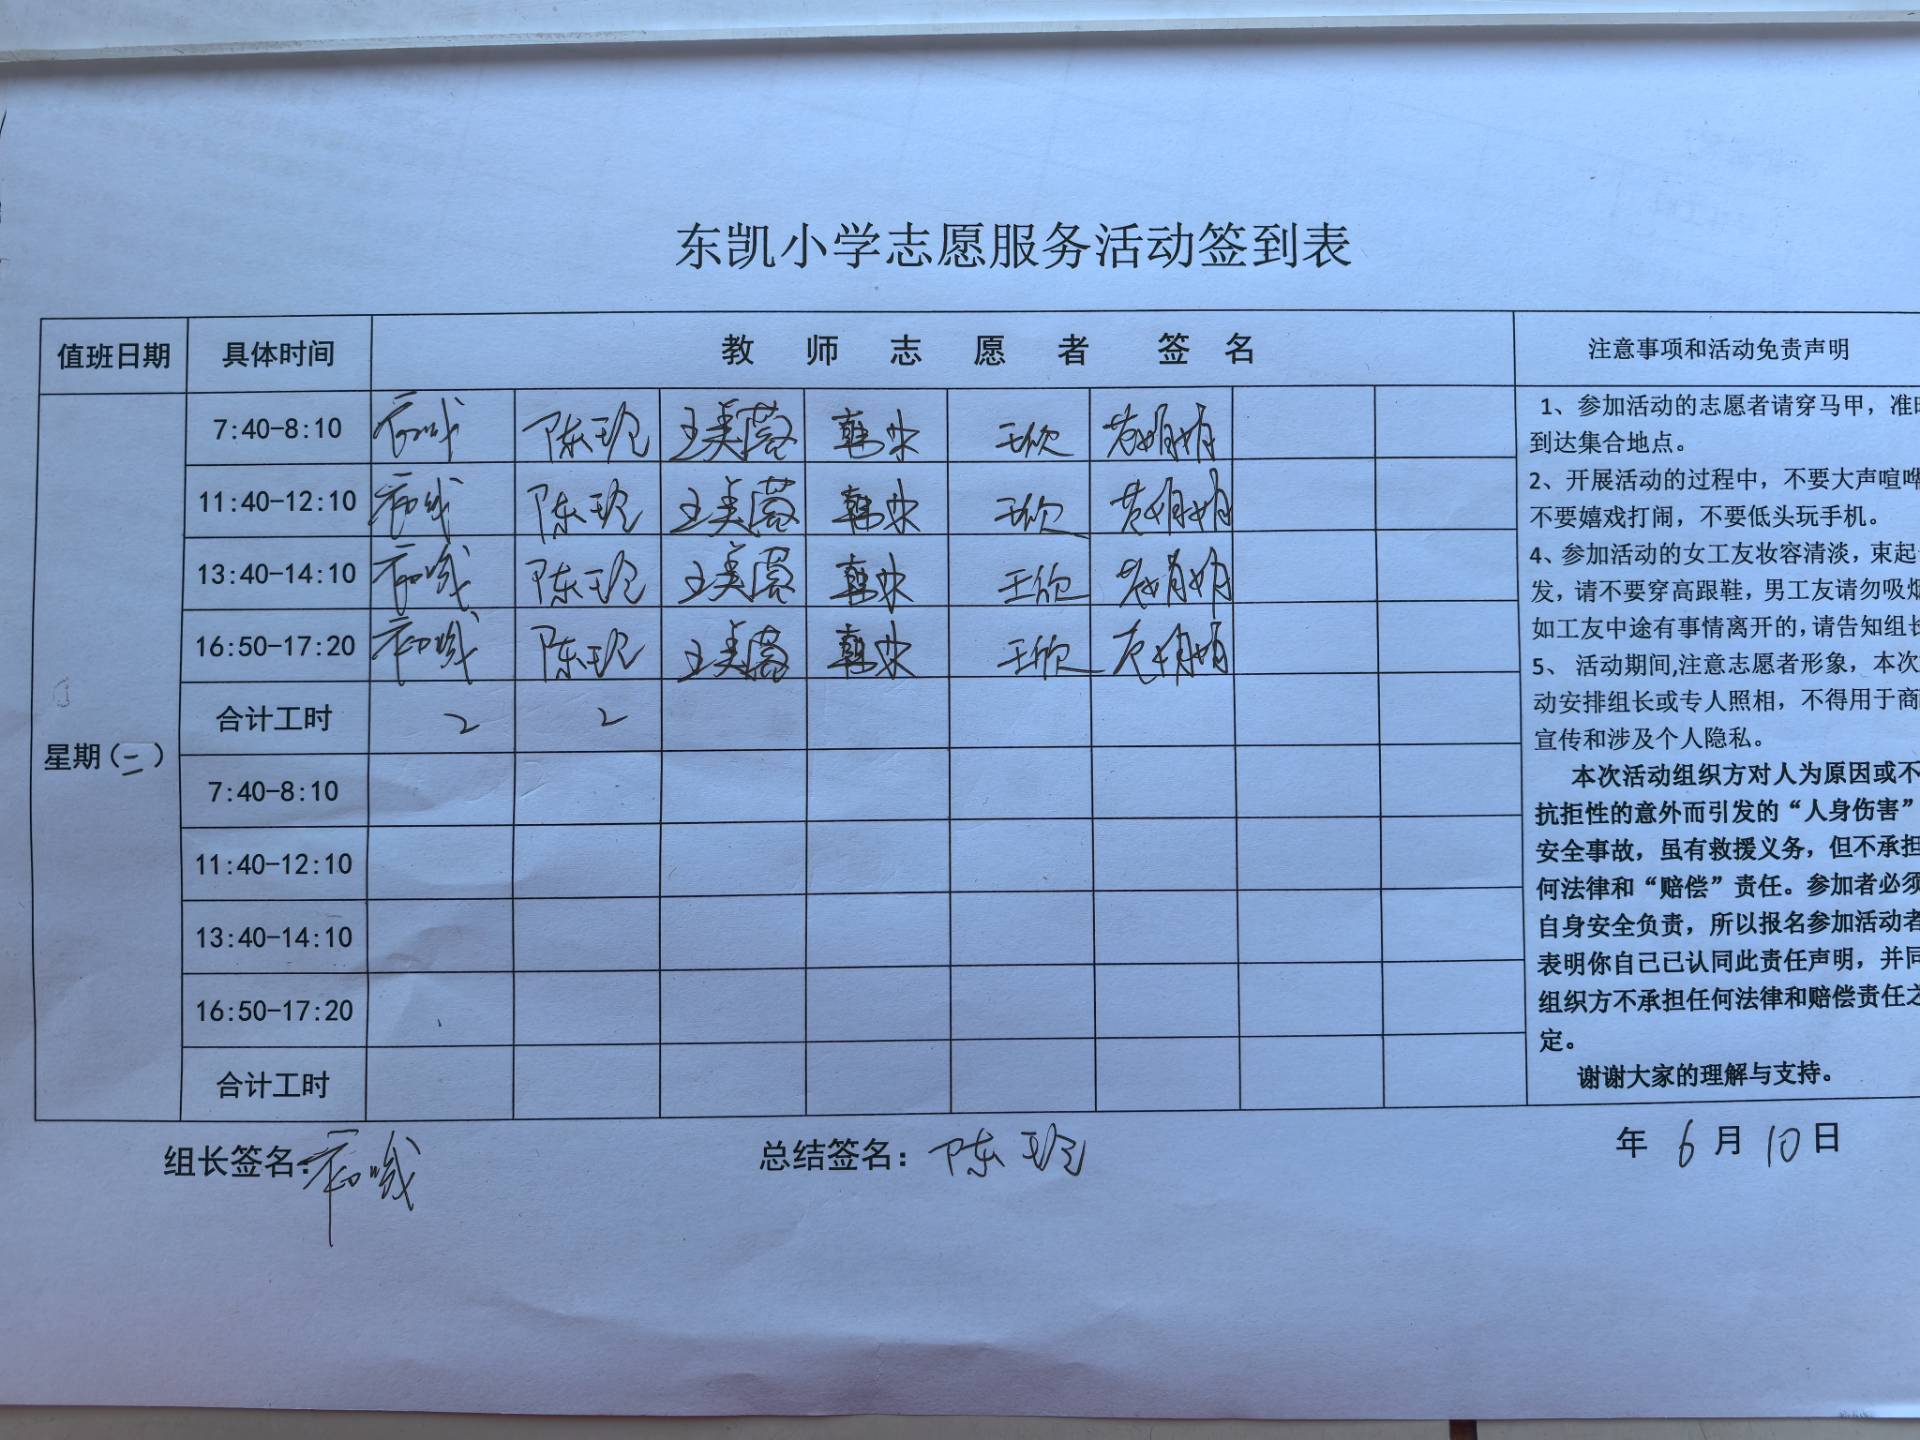 东凯小学志愿服务活动签到表
值班日期 具体时间 教师志愿者 签名 注意事项和活动免责声明
7:40-8:10 陈玲 王美蓉 韩冰 王欣
11:40-12:10 陈玲 王美蓉 韩冰 王欣
13:40-14:10 陈玲 王美蓉 韩冰 王欣
16:50-17:20 陈玲 王美蓉 韩冰 王欣
合计工时 2 2
星期(二)
7:40-8:10
11:40-12:10
13:40-14:10
16:50-17:20
合计工时
1、参加活动的志愿者请穿马甲，准时
到达集合地点。
2、开展活动的过程中，不要大声喧哗
不要嬉戏打闹，不要低头玩手机。
4、参加活动的女工友妆容清淡，束起
发，请不要穿高跟鞋，男工友请勿吸烟
如工友中途有事情离开的,请告知组长
5、 活动期间,注意志愿者形象，本次
动安排组长或专人照相，不得用于商
宣传和涉及个人隐私。
本次活动组织方对人为原因或不
抗拒性的意外而引发的“人身伤害”
安全事故，虽有救援义务，但不承担
何法律和“赔偿”责任。参加者必须
自身安全负责，所以报名参加活动者
表明你自己已认同此责任声明，并同
组织方不承担任何法律和赔偿责任之
定。
谢谢大家的理解与支持。
组长签名: 总结签名：陈玲 年 6 月 10 日